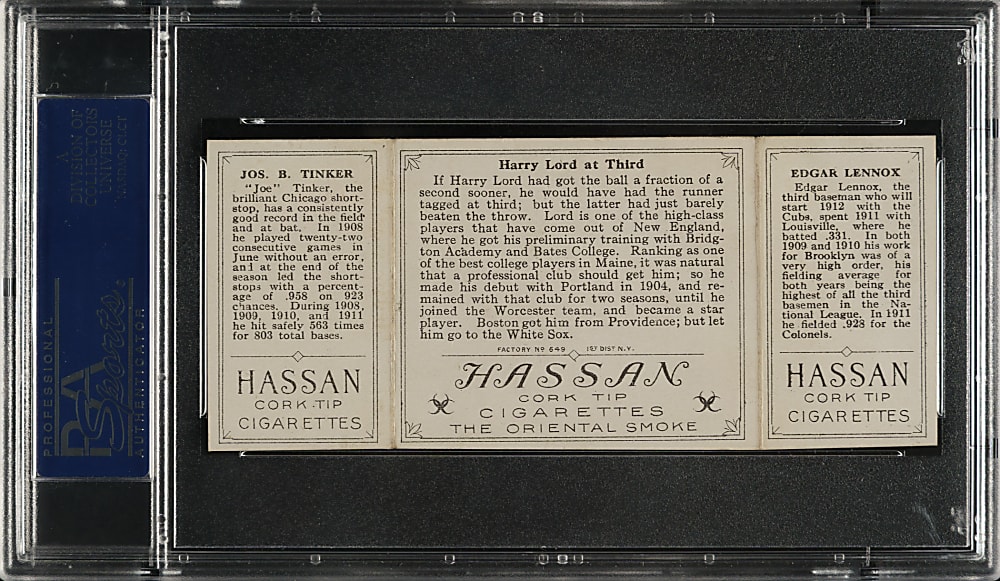 A
DIVISION OF
COLLECTORS
UNIVERSE
PROFESSIONAL
PSA
Sports
AUTHENTICATOR
JOS. B. TINKER
"Joe" Tinker, the
brilliant Chicago short-
stop, has a consistently
good record in the field
and at bat. In 1908
he played twenty-two
consecutive games in
June without an error,
and at the end of the
season led the short-
stops with a percent-
age of .958 on 923
chances. During 1908,
1909, 1910, and 1911
he hit safely 563 times
for 803 total bases.
HASSAN
CORK TIP
CIGARETTES
Harry Lord at Third
If Harry Lord had got the ball a fraction of a
second sooner, he would have had the runner
tagged at third; but the latter had just barely
beaten the throw. Lord is one of the high-class
players that have come out of New England,
where he got his preliminary training with Bridg-
ton Academy and Bates College. Ranking as one
of the best college players in Maine, it was natural
that a professional club should get him; so he
made his debut with Portland in 1904, and re-
mained with that club for two seasons, until he
joined the Worcester team, and became a star
player. Boston got him from Providence; but let
him go to the White Sox.
FACTORY Nº 649 1ST DIST N.Y.
HASSAN
CORK TIP
CIGARETTES
THE ORIENTAL SMOKE
EDGAR LENNOX
Edgar Lennox, the
third baseman who will
start 1912 with the
Cubs, spent 1911 with
Louisville, where he
batted .331. In both
1909 and 1910 his work
for Brooklyn was of a
very high order, his
fielding average for
both years being the
highest of all the third
basemen in the Na-
tional League. In 1911
he fielded .928 for the
Colonels.
HASSAN
CORK TIP
CIGARETTES